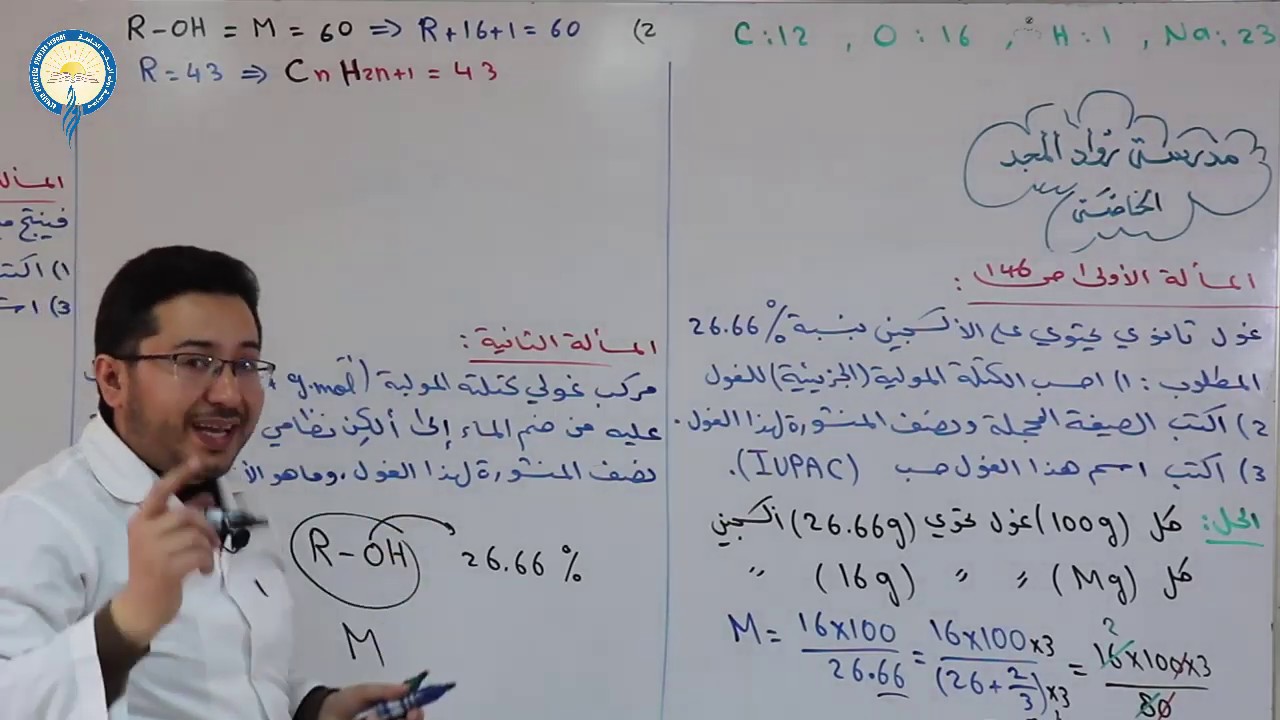 C:12 , O:16 , H:1 , Na:23
مدرستي رواد المجد
الخاصتي
المسألة الأولى ص146 :
غول ثانوي يحتوي على الأكسجين بنسبة 26.66%
المطلوب : 1) احسب الكتلة المولية (الجزيئية) للغول
2) اكتب الصيغة المجملة ونصف المنشورة لهذا الغول.
3) اكتب اسم هذا الغول حسب (IUPAC).
الحل: كل (100g) غول تحوي (26.66g) أكسجين
كل (Mg) " " (16g) "
M = 16x100 / 26.66 = 16x100x3 / (26+2/3)x3 = 16x100x3 / 80
2
2) R-OH = M = 60 => R+16+1 = 60
R = 43 => CnH2n+1 = 43
المسألة الثانية :
مركب غولي كتلته المولية ( g.mol-1
عليه من ضم الماء إلى ألكن نظامي
نصف المنشورة لهذا الغول، وماهو
R-OH 26.66 %
M
1) اكتب
3)